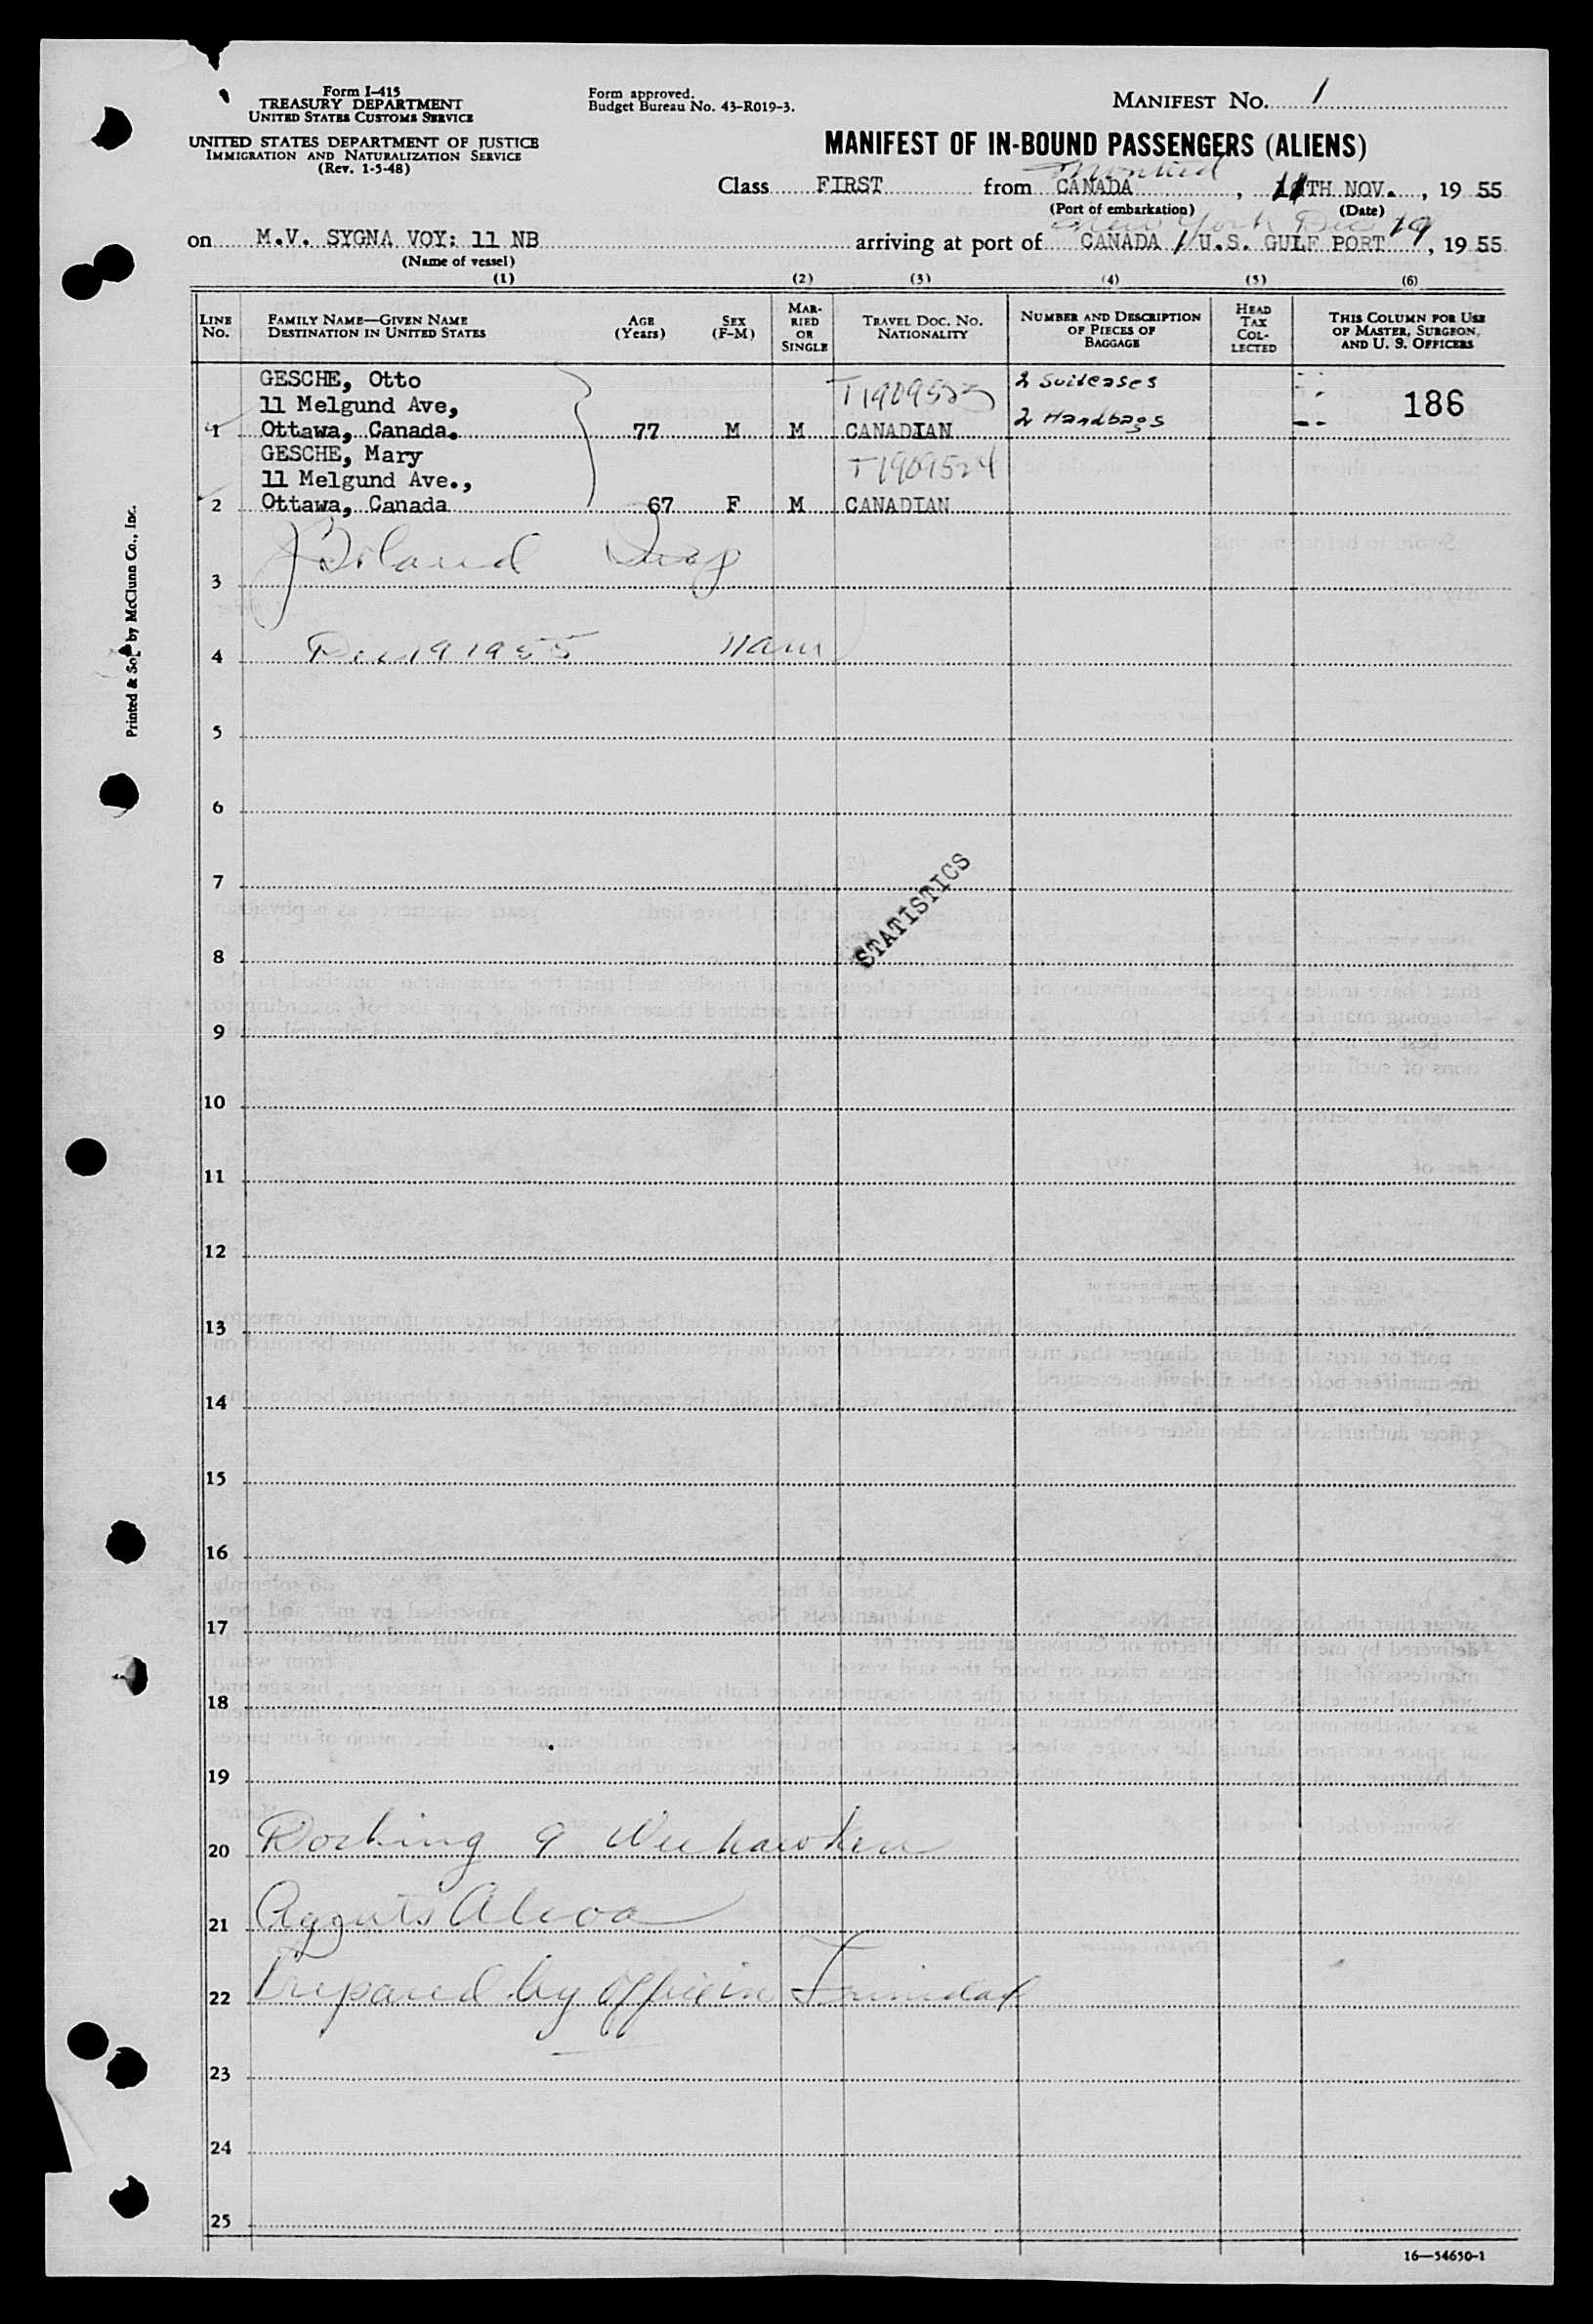 Form I-415
TREASURY DEPARTMENT
UNITED STATES CUSTOMS SERVICE
UNITED STATES DEPARTMENT OF JUSTICE
IMMIGRATION AND NATURALIZATION SERVICE
(Rev. 1-5-48)
Form approved.
Budget Bureau No. 43-R019-3.
MANIFEST No. 1
MANIFEST OF IN-BOUND PASSENGERS (ALIENS)
Montreal
Class FIRST from CANADA, 11TH NOV., 19 55
(Port of embarkation) (Date)
New York Dec 19
on M.V. SYGNA VOY: 11 NB arriving at port of CANADA / U.S. GULF PORT, 19 55
(Name of vessel)
(1) (2) (3) (4) (5) (6)
LINE No.
FAMILY NAME—GIVEN NAME
DESTINATION IN UNITED STATES
AGE (Years)
SEX (F-M)
MARRIED OR SINGLE
TRAVEL DOC. No.
NATIONALITY
NUMBER AND DESCRIPTION OF PIECES OF BAGGAGE
HEAD TAX COLLECTED
THIS COLUMN FOR USE OF MASTER, SURGEON, AND U. S. OFFICERS
GESCHE, Otto T1909523 2 Suitcases
11 Melgund Ave, 186
1 Ottawa, Canada. 77 M M CANADIAN 2 Handbags
GESCHE, Mary T1909524
11 Melgund Ave.,
2 Ottawa, Canada 67 F M CANADIAN
J Boland Insp
3
4 Dec 19 1955 11am
5
6
7
STATISTICS
8
9
10
11
12
13
14
15
16
17
18
19
20 Docking 9 Weehawken
21 Agents Alcoa
22 Prepared by office in Trinidad
23
24
25
16—54650-1
Printed & Sold by McClunn Co., Inc.